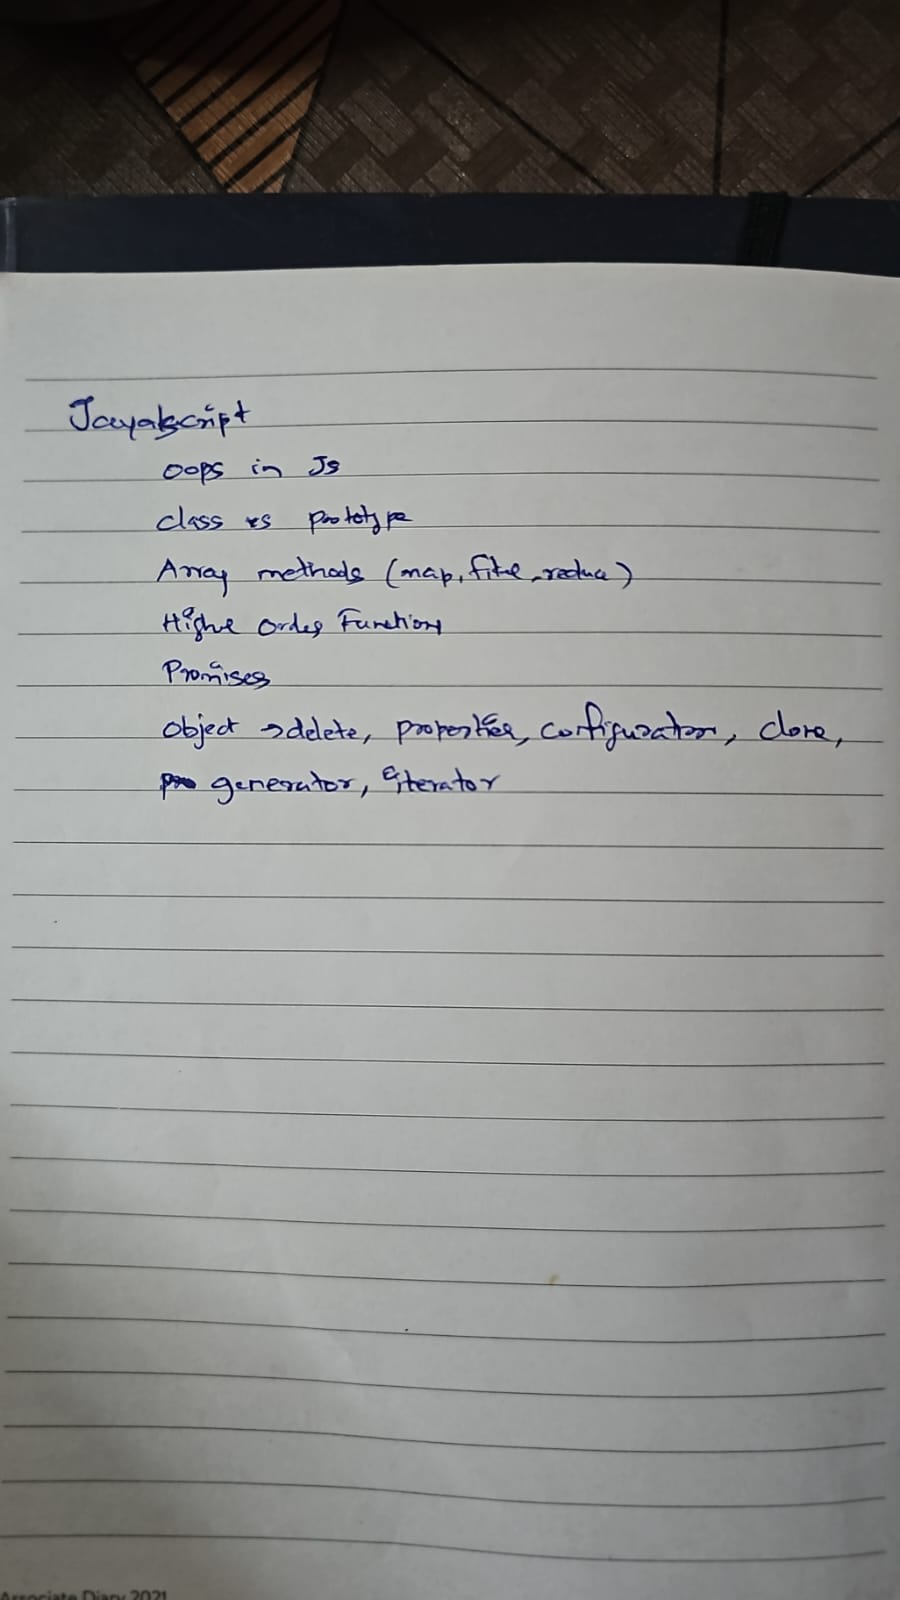 Javascript
oops in Js
class vs prototype
Array methods (map, filte, reduce)
Highe order Functions
Promises
object → delete, properties, configuration, clone,
generator, iterator
Associate Diary 2021